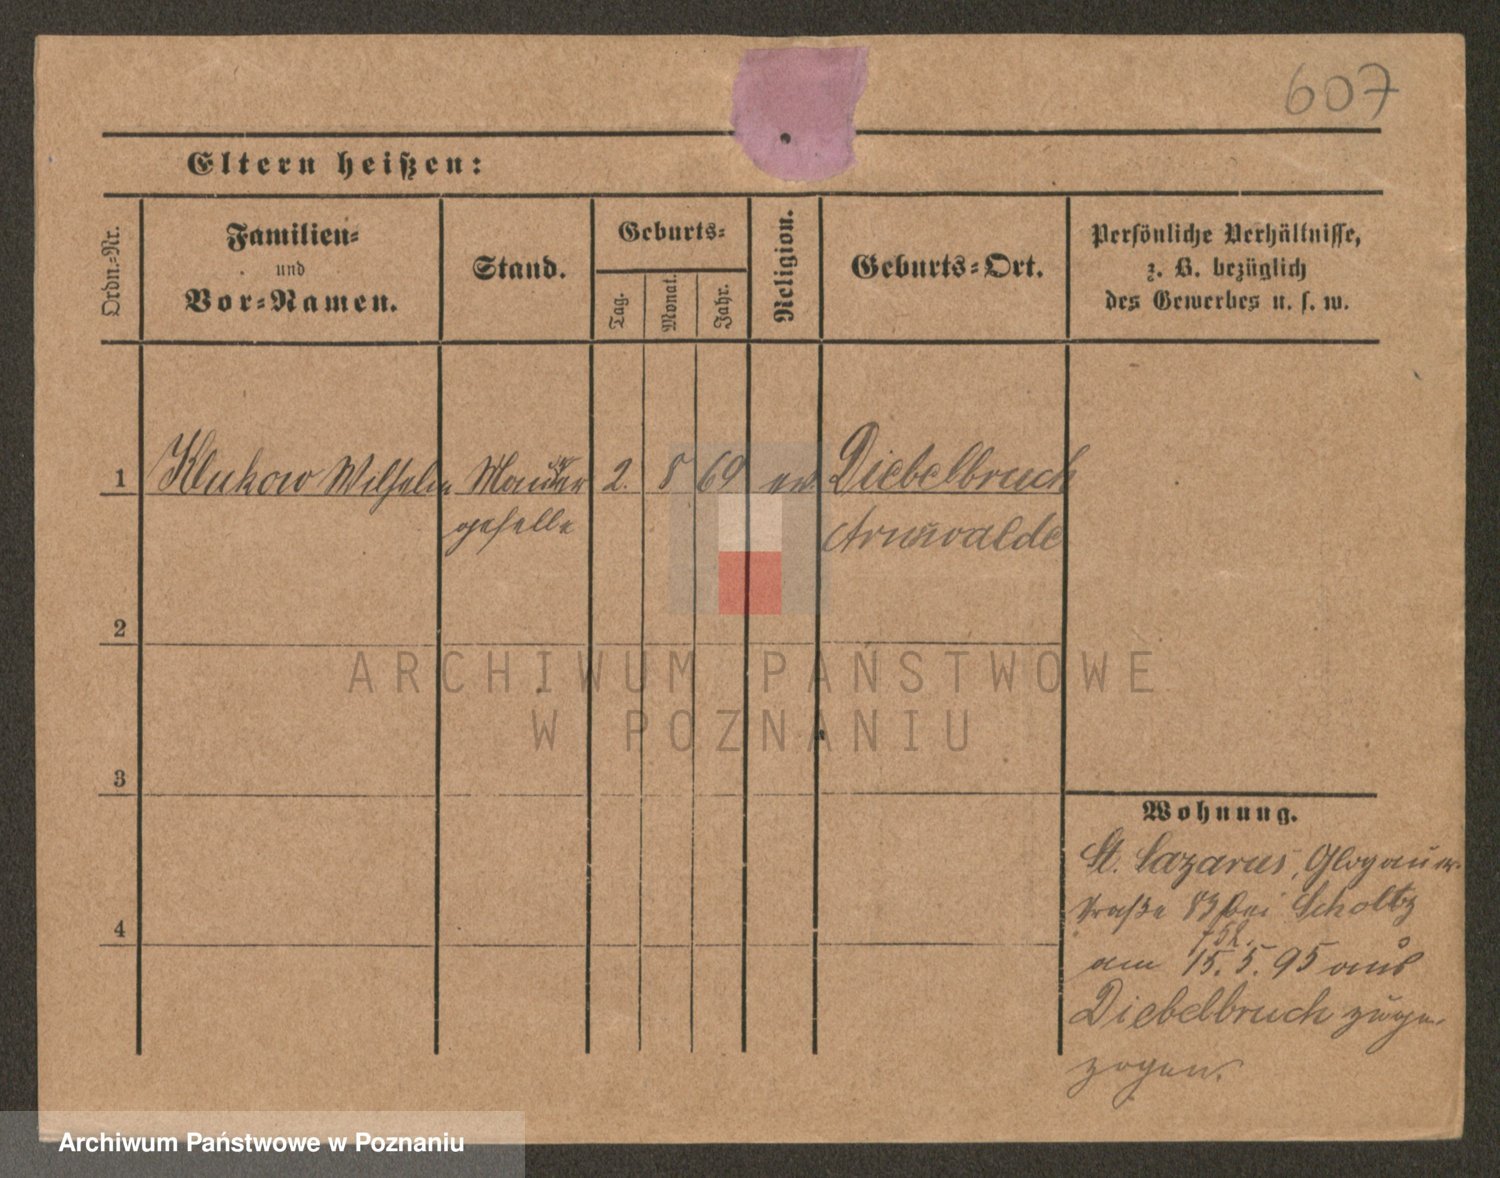 607
Eltern heißen:
Ordn.-Nr.
Familien-
und
Vor-Namen.
Stand.
Geburts-
Tag.
Monat.
Jahr.
Religion.
Geburts-Ort.
Persönliche Verhältnisse,
z. B. bezüglich
des Gewerbes u. s. w.
1 Klukow Wilhelm Maurer 2. 8 69 ev. Diebelbruch
geselle Arnswalde
2
3
4
ARCHIWUM PAŃSTWOWE
W POZNANIU
Wohnung.
St. Lazarus, Glogauer-
straße 83 bei Scholtz
am 15. 5. 95 aus
Diebelbruch zuge-
zogen.
Archiwum Państwowe w Poznaniu